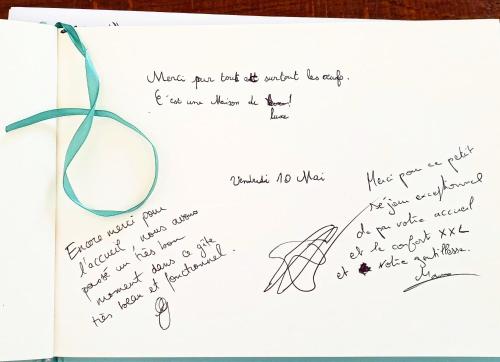 Merci pour tout et surtout les œufs.
C'est une Maison de luxe!
Vendredi 10 Mai
Encore merci pour
l'accueil, nous avons
passé un très bon
moment dans ce gîte
très beau et fonctionnel.
Merci pour ce petit
séjour exceptionnel
de par votre accueil
et le confort XXL
et votre gentillesse.